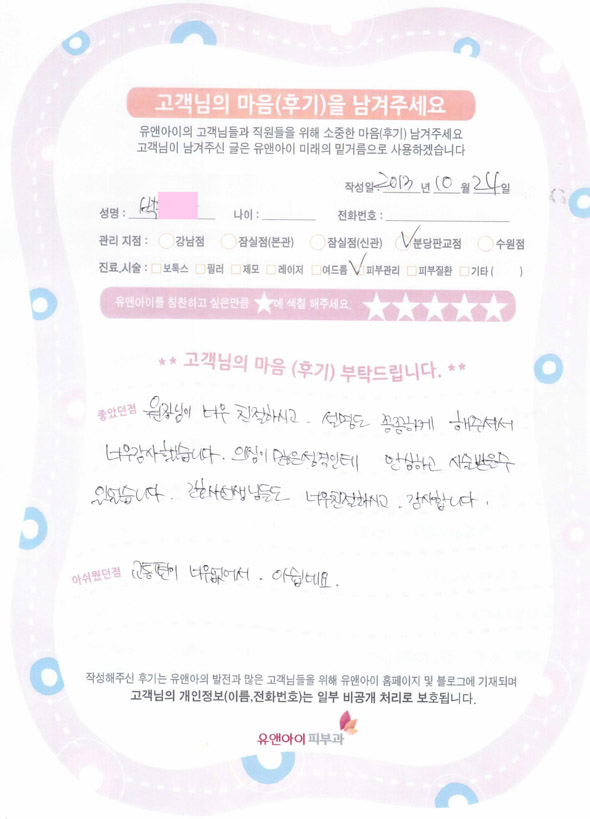 고객님의 마음(후기)을 남겨주세요
유앤아이의 고객님들과 직원들을 위해 소중한 마음(후기) 남겨주세요
고객님이 남겨주신 글은 유앤아이 미래의 밑거름으로 사용하겠습니다
작성일 2013 년 10 월 24 일
성명 : 박 나이 : 전화번호 :
관리 지점 : 강남점 잠실점(본관) 잠실점(신관) 분당판교점 수원점
진료,시술 : 보톡스 필러 제모 레이저 여드름 피부관리 피부질환 기타 ( )
유앤아이를 칭찬하고 싶은만큼 ★에 색칠 해주세요. ★★★★★
** 고객님의 마음 (후기) 부탁드립니다. **
좋았던점 원장님이 너무 친절하시고. 설명도 꼼꼼하게 해주셔서
너무감사했습니다. 의심이 많은성격인데 안심하고 시술받을수
있었습니다. 간호사선생님들도 너무친절하시고. 감사합니다.
아쉬웠던점 교통편이 너무없어서. 아쉽네요.
작성해주신 후기는 유앤아의 발전과 많은 고객님들을 위해 유앤아이 홈페이지 및 블로그에 기재되며
고객님의 개인정보(이름,전화번호)는 일부 비공개 처리로 보호됩니다.
유앤아이 피부과